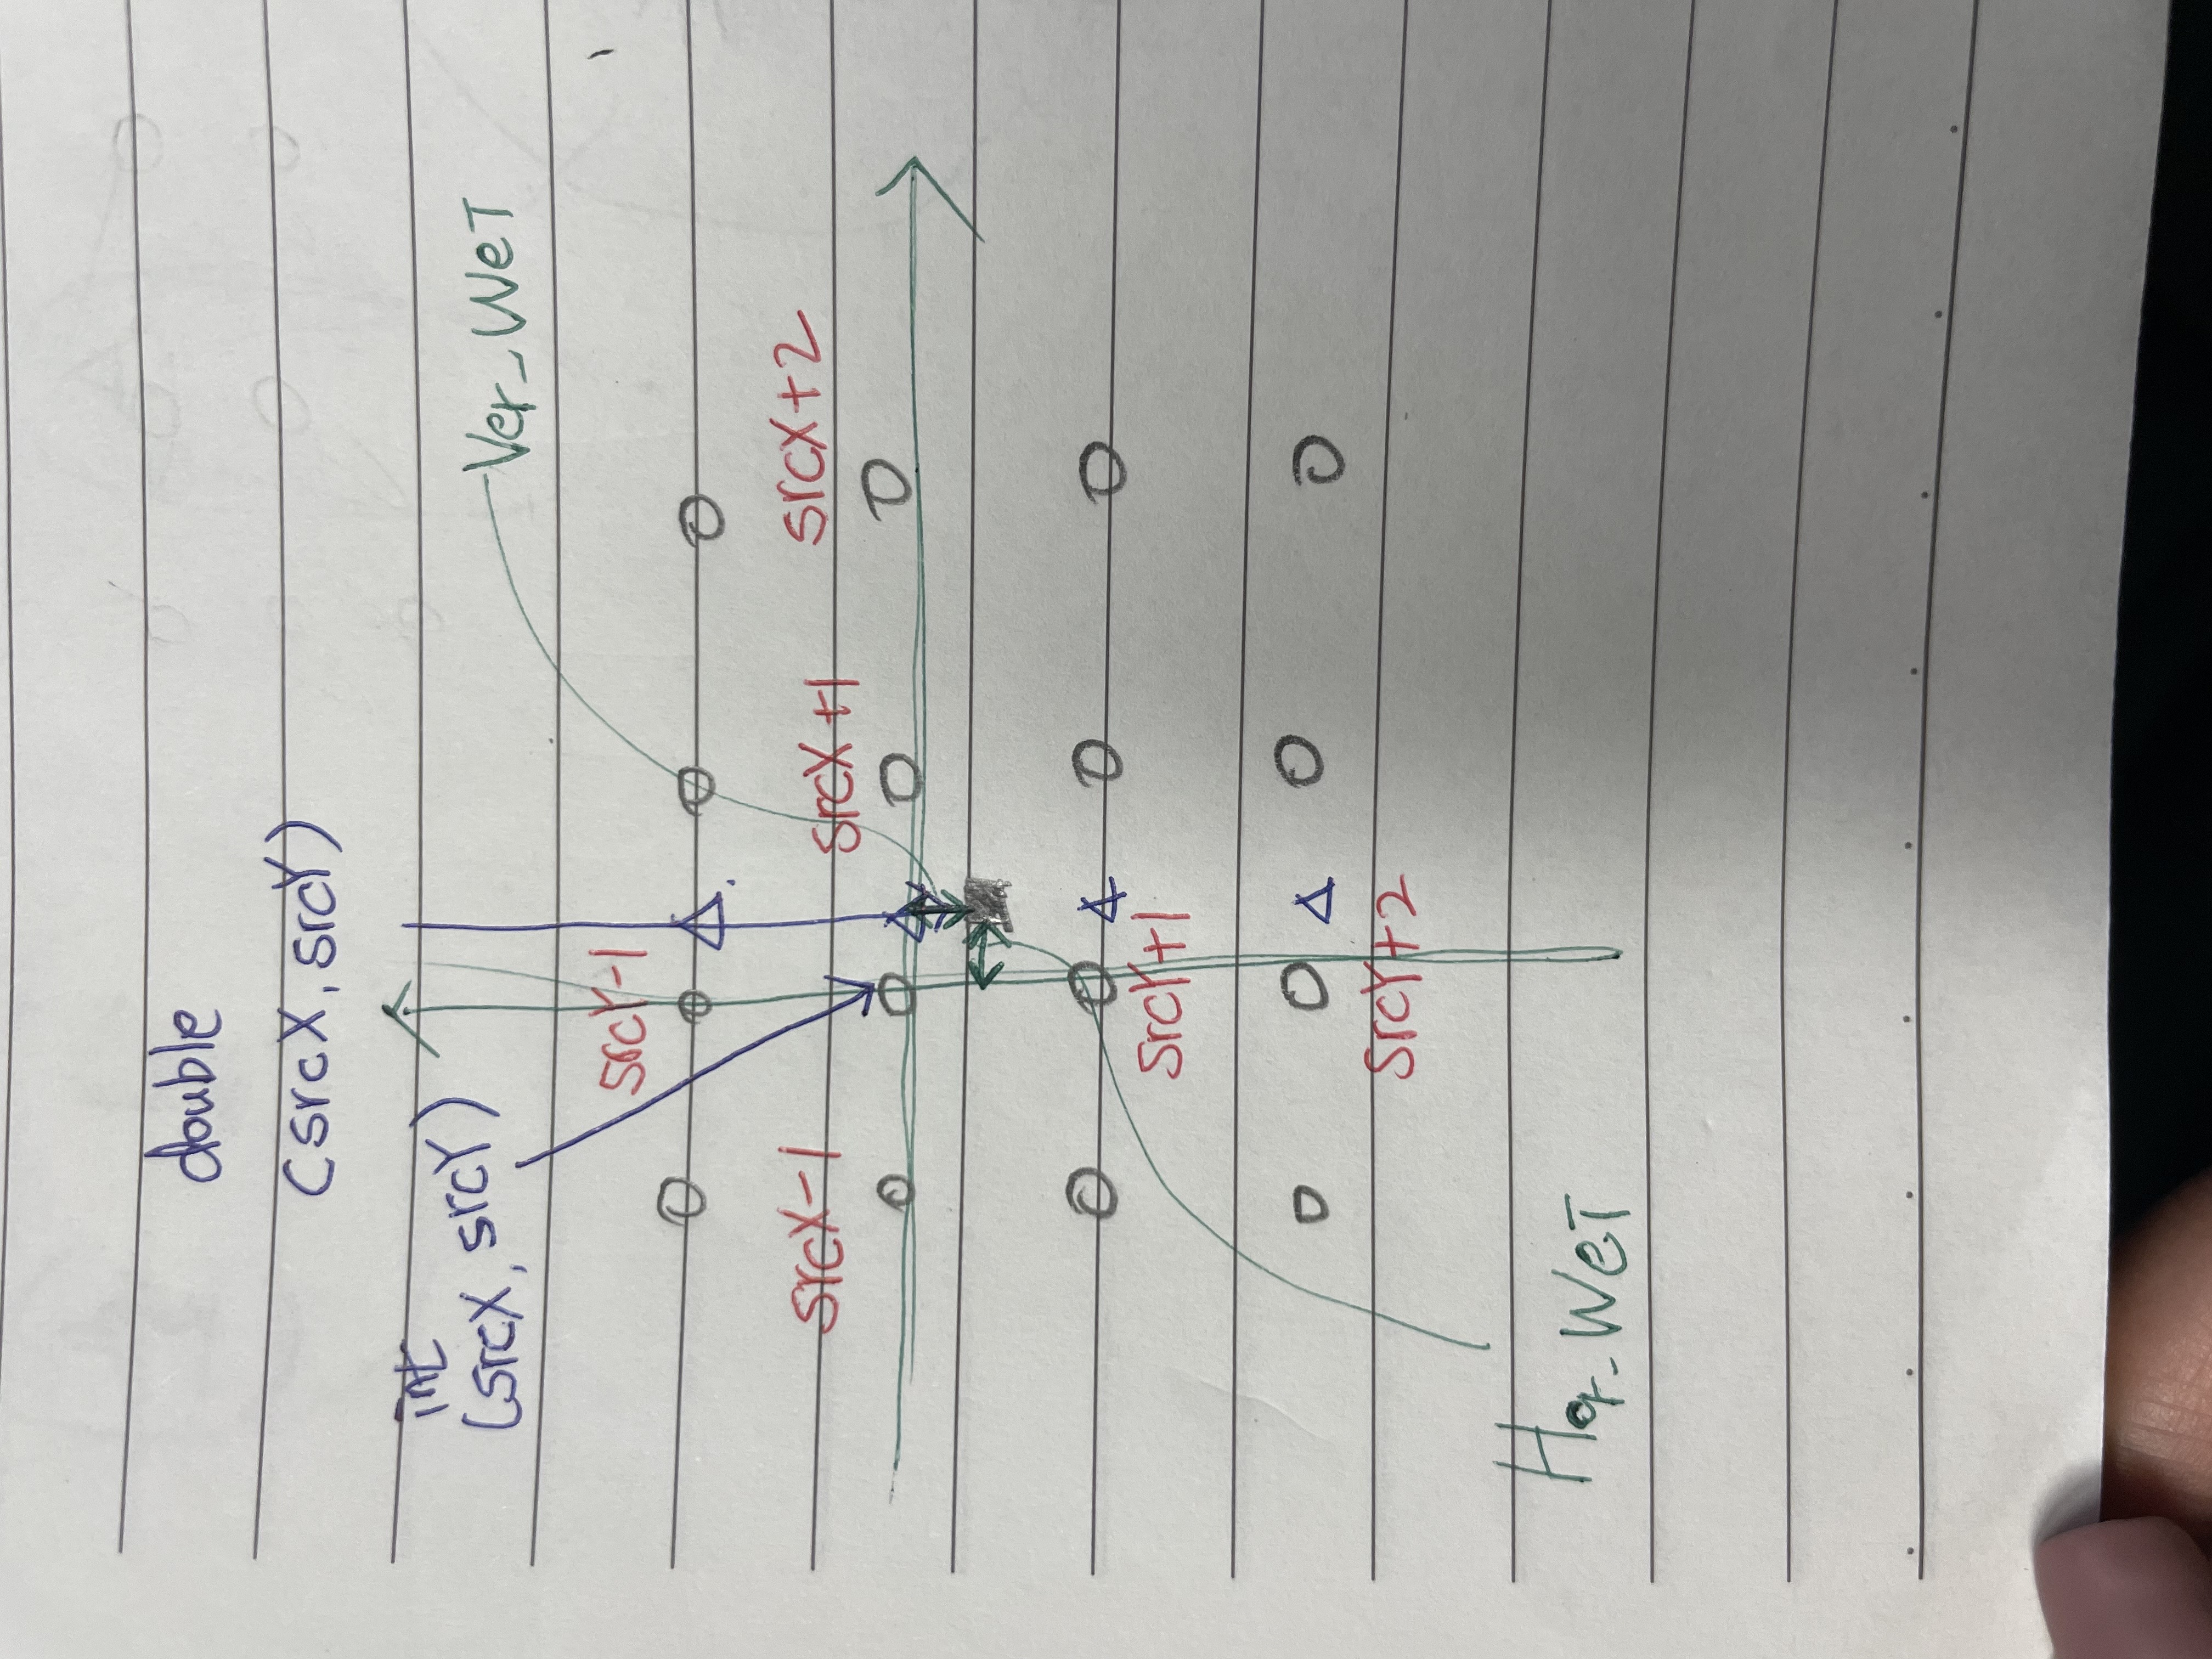 double
(srcX, srcY)
int
(srcX, srcY)
Ver_WeT
srcY-1
srcX-1
srcX+1
srcX+2
srcY+1
srcY+2
Hor_WeT